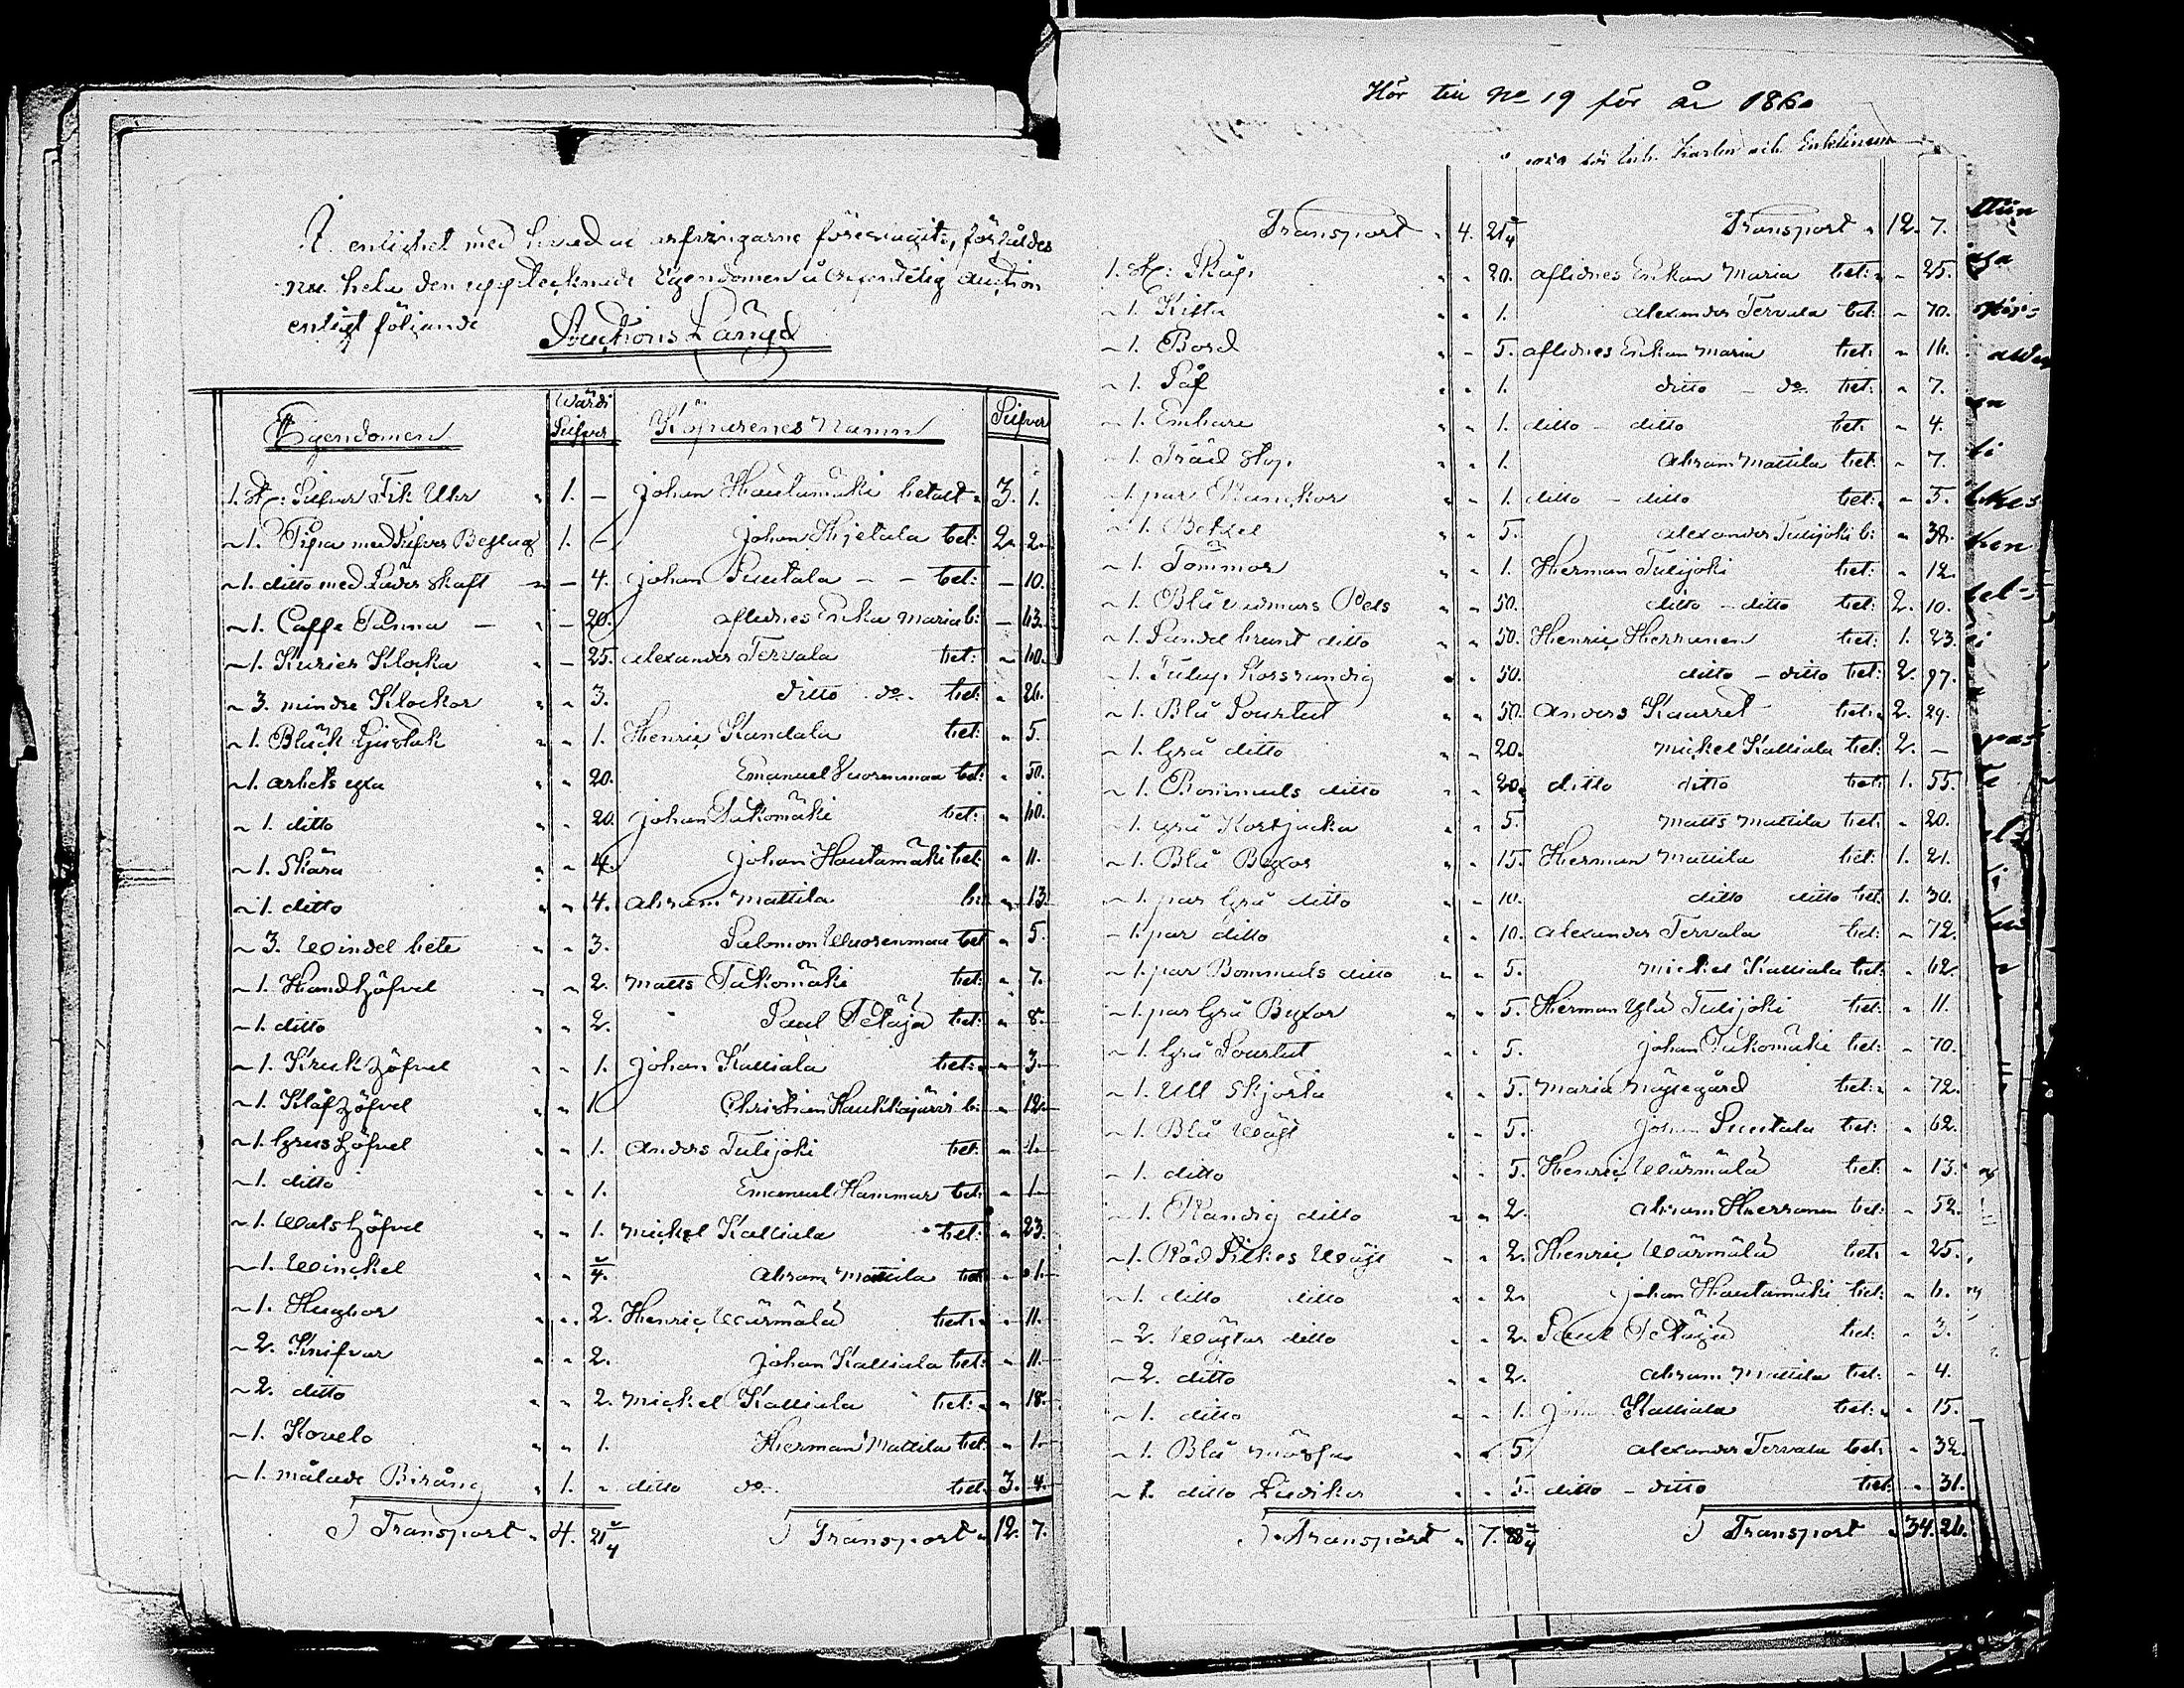 I enlighet med hvad arfvingarne föreslagit, försåldes
nu hela den upptecknade Egendomen å offentelig auction
enligt följande
Auctions Längd
Egendomen Wärdi Silfver Köparenes Namn Silfver
1. st: Silfver Fik Uhr " 1. – Johan Hautamäki betalt " 3. 1.
~ 1. Pipa med Silfver Beslag 1. – Johan Hjetala bet: 2. 2.
~ 1. ditto med Läder skaft – 4. Johan Puutala – – bet: – 10.
~ 1. Caffe Panna – " – 20. aflidnes Enka Maria b: – 43.
~ 1. Kurier Klocka " – 25. Alexander Tervala bet: " 40.
~ 3. mindre Klockor " " 3. ditto do. bet: " 26.
~ 1. Bläck Ljusstak " " 1. Henric Kandala bet: " 5.
~ 1. arbets yxa " " 20. Emanuel Vuorenmaa bet: " 50.
~ 1. ditto " " 20. Johan Tukomäki bet: " 40.
~ 1. Skära " " 4. Johan Hautamäki bet: " 11.
~ 1. ditto " " 4. Abram Mattila b: " 13.
~ 3. Windel bete " " 3. Salomon Wuorenmaa bet " 5.
~ 1. Handhöfvel " " 2. Matts Tukomäki bet: " 7.
~ 1. ditto " " 2. Paul Petäjä bet: " 8.
~ 1. Kruk höfvel " " 1. Johan Kalliala bet: " 3.
~ 1. Klåf höfvel " " 1. Christian Haukkajärvi b: " 12.
~ 1. Grus höfvel " " 1. Anders Tulijoki bet: " 1.
~ 1. ditto " " 1. Emanuel Hammar bet: " 1.
~ 1. Wals höfvel " " 1. Mickel Kalliala bet: " 23.
~ 1. Winckel " " Abram Mattila bet " 1.
~ 1. Hugbor " " 2. Henric Wärmälä bet: " 11.
~ 2. Knifvar " " 2. Johan Kalliala bet: " 11.
~ 2. ditto " " 2. Mickel Kalliala bet: " 18.
~ 1. Kovelo " " 1. Herman Mattila bet: " 1.
~ 1. målade Birång " 1. " ditto do. bet. 3. 4.
Transport " 4. 21 Transport " 12. 7.
Hör till No 19 för år 1860
Transport " 4. 21 Transport " 12. 7.
1. st: Skåp " " 20. aflidnes Enkan Maria bet: " 25.
~ 1. Kista " " 1. Alexander Tervala bet: " 70.
~ 1. Bord " " 5. aflidnes Enkan Maria bet: " 16.
~ 1. Såf " " 1. ditto – do bet: " 7.
~ 1. Embare " " 1. ditto – ditto bet: " 4.
~ 1. Träd stop " " 1. Abram Mattila bet: " 7.
~ 1. par Ranckor " " 1. ditto – ditto bet: " 5.
~ 1. Betzel " " 5. Alexander Tulijoki b: " 38.
~ 1. Tömmor " " 1. Herman Tulijoki bet: " 12.
~ 1. Blå wadmars Pels " " 50. ditto – ditto bet: 2. 10.
~ 1. Sandel brunt ditto " " 50. Henric Herranen bet: 1. 23.
~ 1. Tulup Korsrandig " " 50. ditto – ditto bet: 2. 97.
~ 1. Blå Sourtut " " 50. Anders Kaurret bet: 2. 29.
~ 1. Grå ditto " " 20. Mickel Kalliala bet: 2. –
~ 1. Bommuls ditto " " 20. ditto ditto bet: 1. 55.
~ 1. grå Kortjacka " " 5. Matts Mattila bet: " 20.
~ 1. Blå Byxor " " 15. Herman Mattila bet: 1. 21.
~ 1. par Grå ditto " " 10. ditto ditto bet: 1. 30.
~ 1. par ditto " " 10. Alexander Tervala bet: " 72.
~ 1. par Bommuls ditto " " 5. Mickel Kalliala bet: " 62.
~ 1. par Grå Byxor " " 5. Herman Yli Tulijoki bet: " 11.
~ 1. Grå Sourtut " " 5. Johan Tukomäki bet: " 70.
~ 1. Ull Skjorta " " 5. Maria Nygegård bet: " 72.
~ 1. Blå Wäst " " 5. Johan Puutala bet: " 62.
~ 1. ditto " " 5. Henric Wärmälä bet: " 13.
~ 1. Randig ditto " " 2. Abram Herranen bet: " 52.
~ 1. Röd Silkes Wäst " " 2. Henric Wärmälä bet: " 25.
~ 1. ditto ditto " " 2. Johan Hautamäki bet: " 6.
~ 2. Wästar ditto " " 2. Paul Petäjä bet: " 3.
~ 2. ditto " " 2. Abram Mattila bet: " 4.
~ 1. ditto " " 1. Johan Kalliala bet: " 15.
~ 1. Blå mössa " " 5. Alexander Tervala bet: " 32.
~ 1. ditto Ludika " " 5. ditto – ditto bet: " 31.
Transport " 7. 88 Transport " 34. 26.